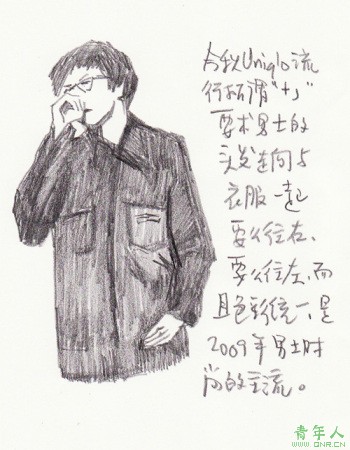 今秋Uniqlo流
行所谓“+J”
要求男士的
头发走向与
衣服一起
要么往右、
要么往左，而
且色彩统一，是
2009年男士时
尚的主流。
青年人
WWW.QNR.CN